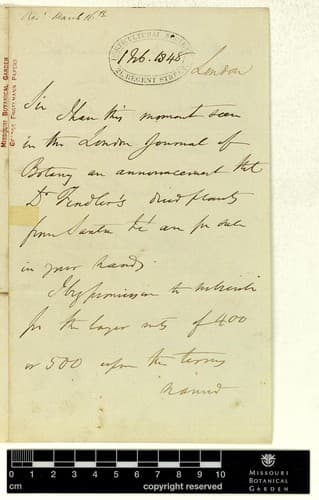 Rec' March 16th
HORTICULTURAL SOCIETY
1 Feb. 1848
21, REGENT STREET
London
MISSOURI BOTANICAL GARDEN
GEORGE ENGELMANN PAPERS
Sir
I have this moment seen
in the London Journal of
Botany an announcement that
Dr Fendler's dried plants
from Santa Fé are for sale
in your hands.
I beg permission to subscribe
for the larger sets of 400
or 500 upon the terms
named
cm 1 2 3 4 5 6 7 8 9 10
copyright reserved
MISSOURI
BOTANICAL
GARDEN